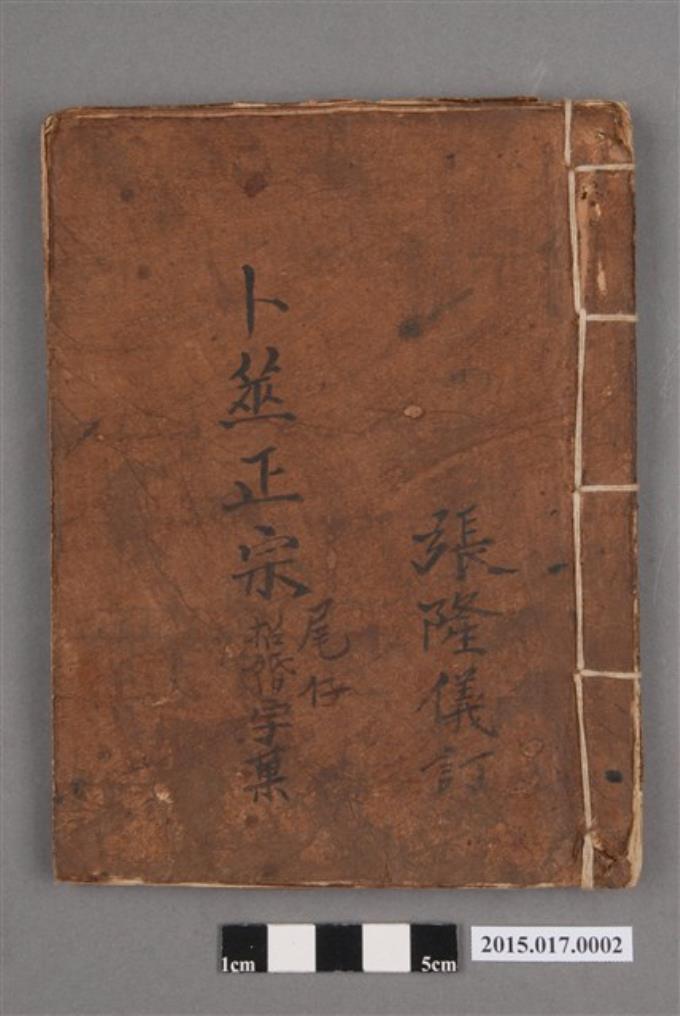 張隆儀訂
卜筮正宗
尾仔
招婚字菓
1cm
5cm
2015.017.0002